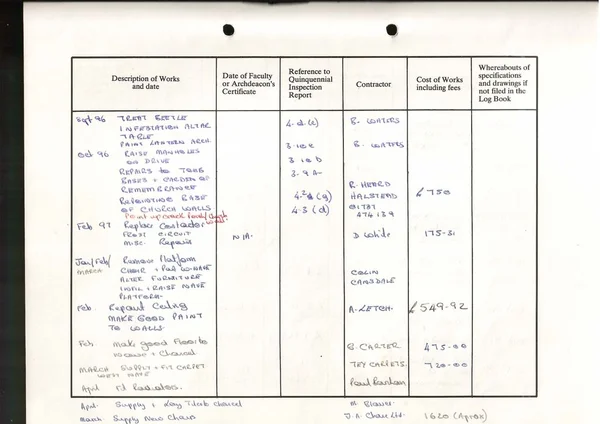 Description of Works and date
Date of Faculty or Archdeacon's Certificate
Reference to Quinquennial Inspection Report
Contractor
Cost of Works including fees
Whereabouts of specifications and drawings if not filed in the Log Book
Sept 96 TREAT BEETLE
INFESTATION ALTAR 4.d.(c) B. WATERS
TABLE
PAINT LANTERN ARCH 3.10c B. WATERS
Oct 96 RAISE MANHOLES
ON DRIVE 3 10 b
REPAIRS to TOMB 3.9A
BASES + GARDEN OF
REMEMBRANCE R. HEARD
REPOINTING BASE 4.2(g) HALSTEAD £750
OF CHURCH WALLS 4.3(d) 01787
Point up crack 474139
Feb 97 Replace Contactor
FROST CIRCUIT N/A. D White 175-31
MISC. Repairs
Jan/Feb/ Remove Platform
MARCH CHOIR +
ALTER FURNITURE COLIN
INFIL + RAISE NAVE CANSDALE
PLATFORM.
Feb. Repaint Ceiling A. LETCH. £549-92
MAKE GOOD PAINT
TO WALLS.
Feb make good floor to B. CARTER 475-00
+ Chancel
MARCH SUPPLY + FIT CARPET TEY CARPETS. 720-00
WEST NAVE
April Radiators.
April Supply + Lay Chancel
March Supply New Chairs J. Chair Ltd. 1620 (Aprox)